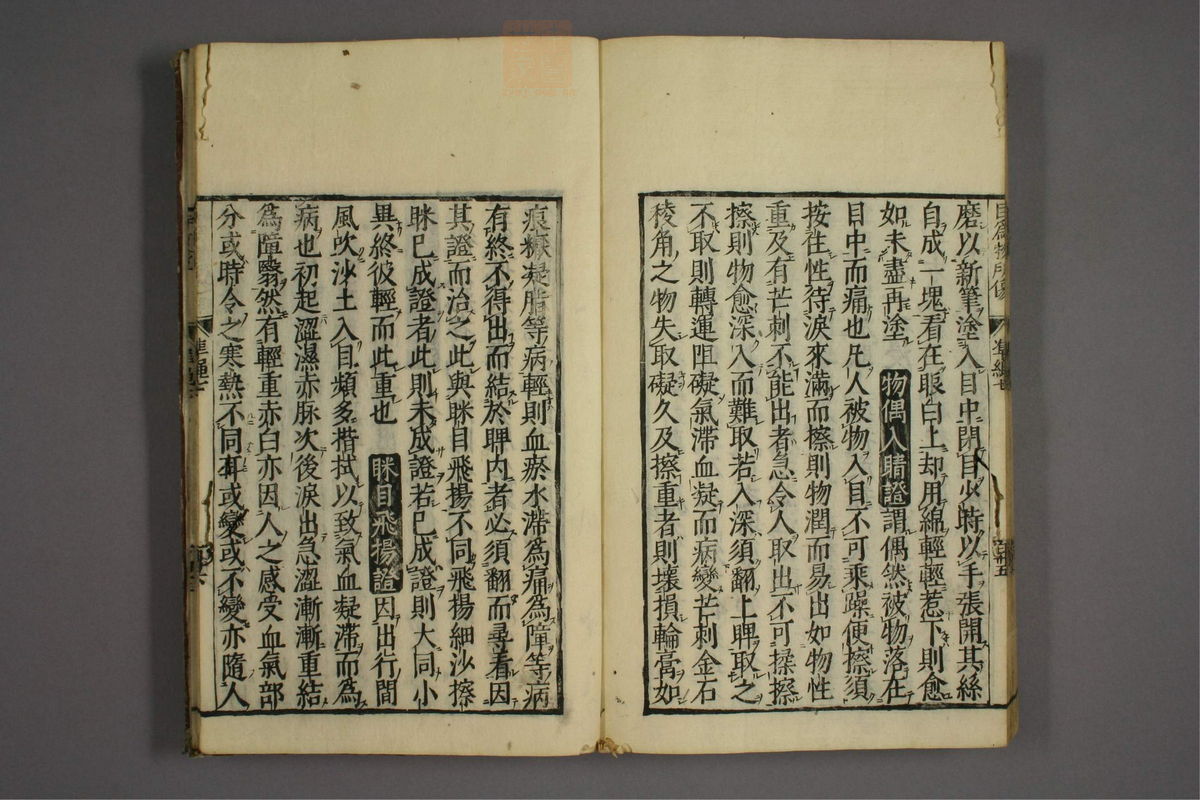 磨以新筆塗入目中閉目少時以手張開其絲
自成一塊看在眼白上却用綿輕輕惹下則愈
如未盡再塗 物偶入睛證 謂偶然被物落在
目中而痛也凡人被物入目不可乘躁便擦須
按性待淚來滿而擦則物潤而易出如物性
重及有芒刺不能出者急令人取出不可揉擦
擦則物愈深入而難取若入深須翻上睥取之
不取則轉運阻礙氣滯血凝而病變芒刺金石
稜角之物失取礙久及擦重者則壞損輪膏如
痕㿜凝脂等病輕則血瘀水滯為痛為障等病
有終不得出而結於睥內者必須翻而尋看因
其證而治之此與眯目飛揚不同飛揚細沙擦
眯已成證者此則未成證若已成證則大同小
異終彼輕而此重也 眯目飛揚證 因出行間
風吹沙土入目頻多揩拭以致氣血凝滯而為
病也初起澀濕赤脉次後淚出急澀漸漸重結
為障翳然有輕重赤白亦因人之感受血氣部
分或時令之寒熱不同耳或變或不變亦隨人